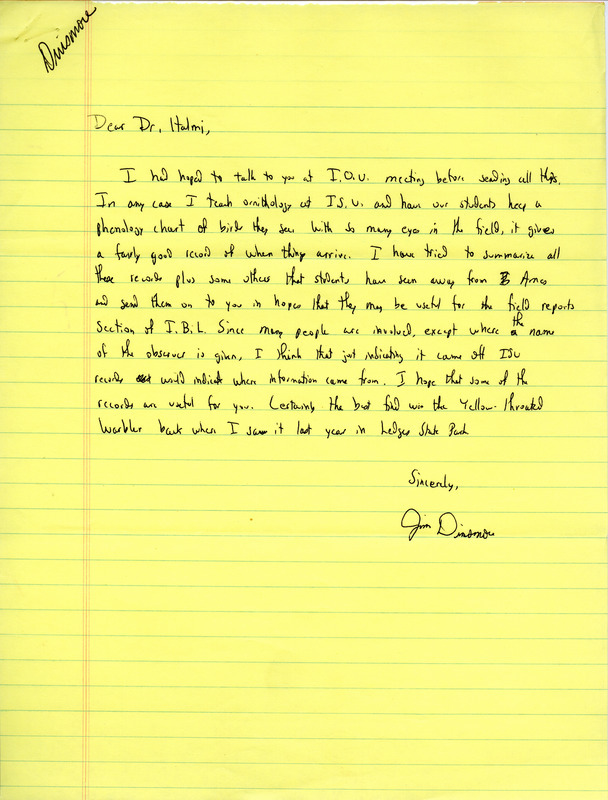 Dinsmore
Dear Dr. Halmi,
I had hoped to talk to you at I.O.U. meeting before sending all this.
In any case I teach ornithology at I.S.U. and have our students keep a
phenology chart of birds they see. With so many eyes in the field, it gives
a fairly good record of when things arrive. I have tried to summarize all
these records plus some others that students have seen away from Ames
and send them on to you in hopes that they may be useful for the field reports
section of I.B.L. Since many people are involved, except where the name
of the observer is given, I think that just indicating it came off ISU
records would indicate where information came from. I hope that some of the
records are useful for you. Certainly the best find was the Yellow-throated
Warbler back where I saw it last year in Ledges State Park
Sincerely,
Jim Dinsmore